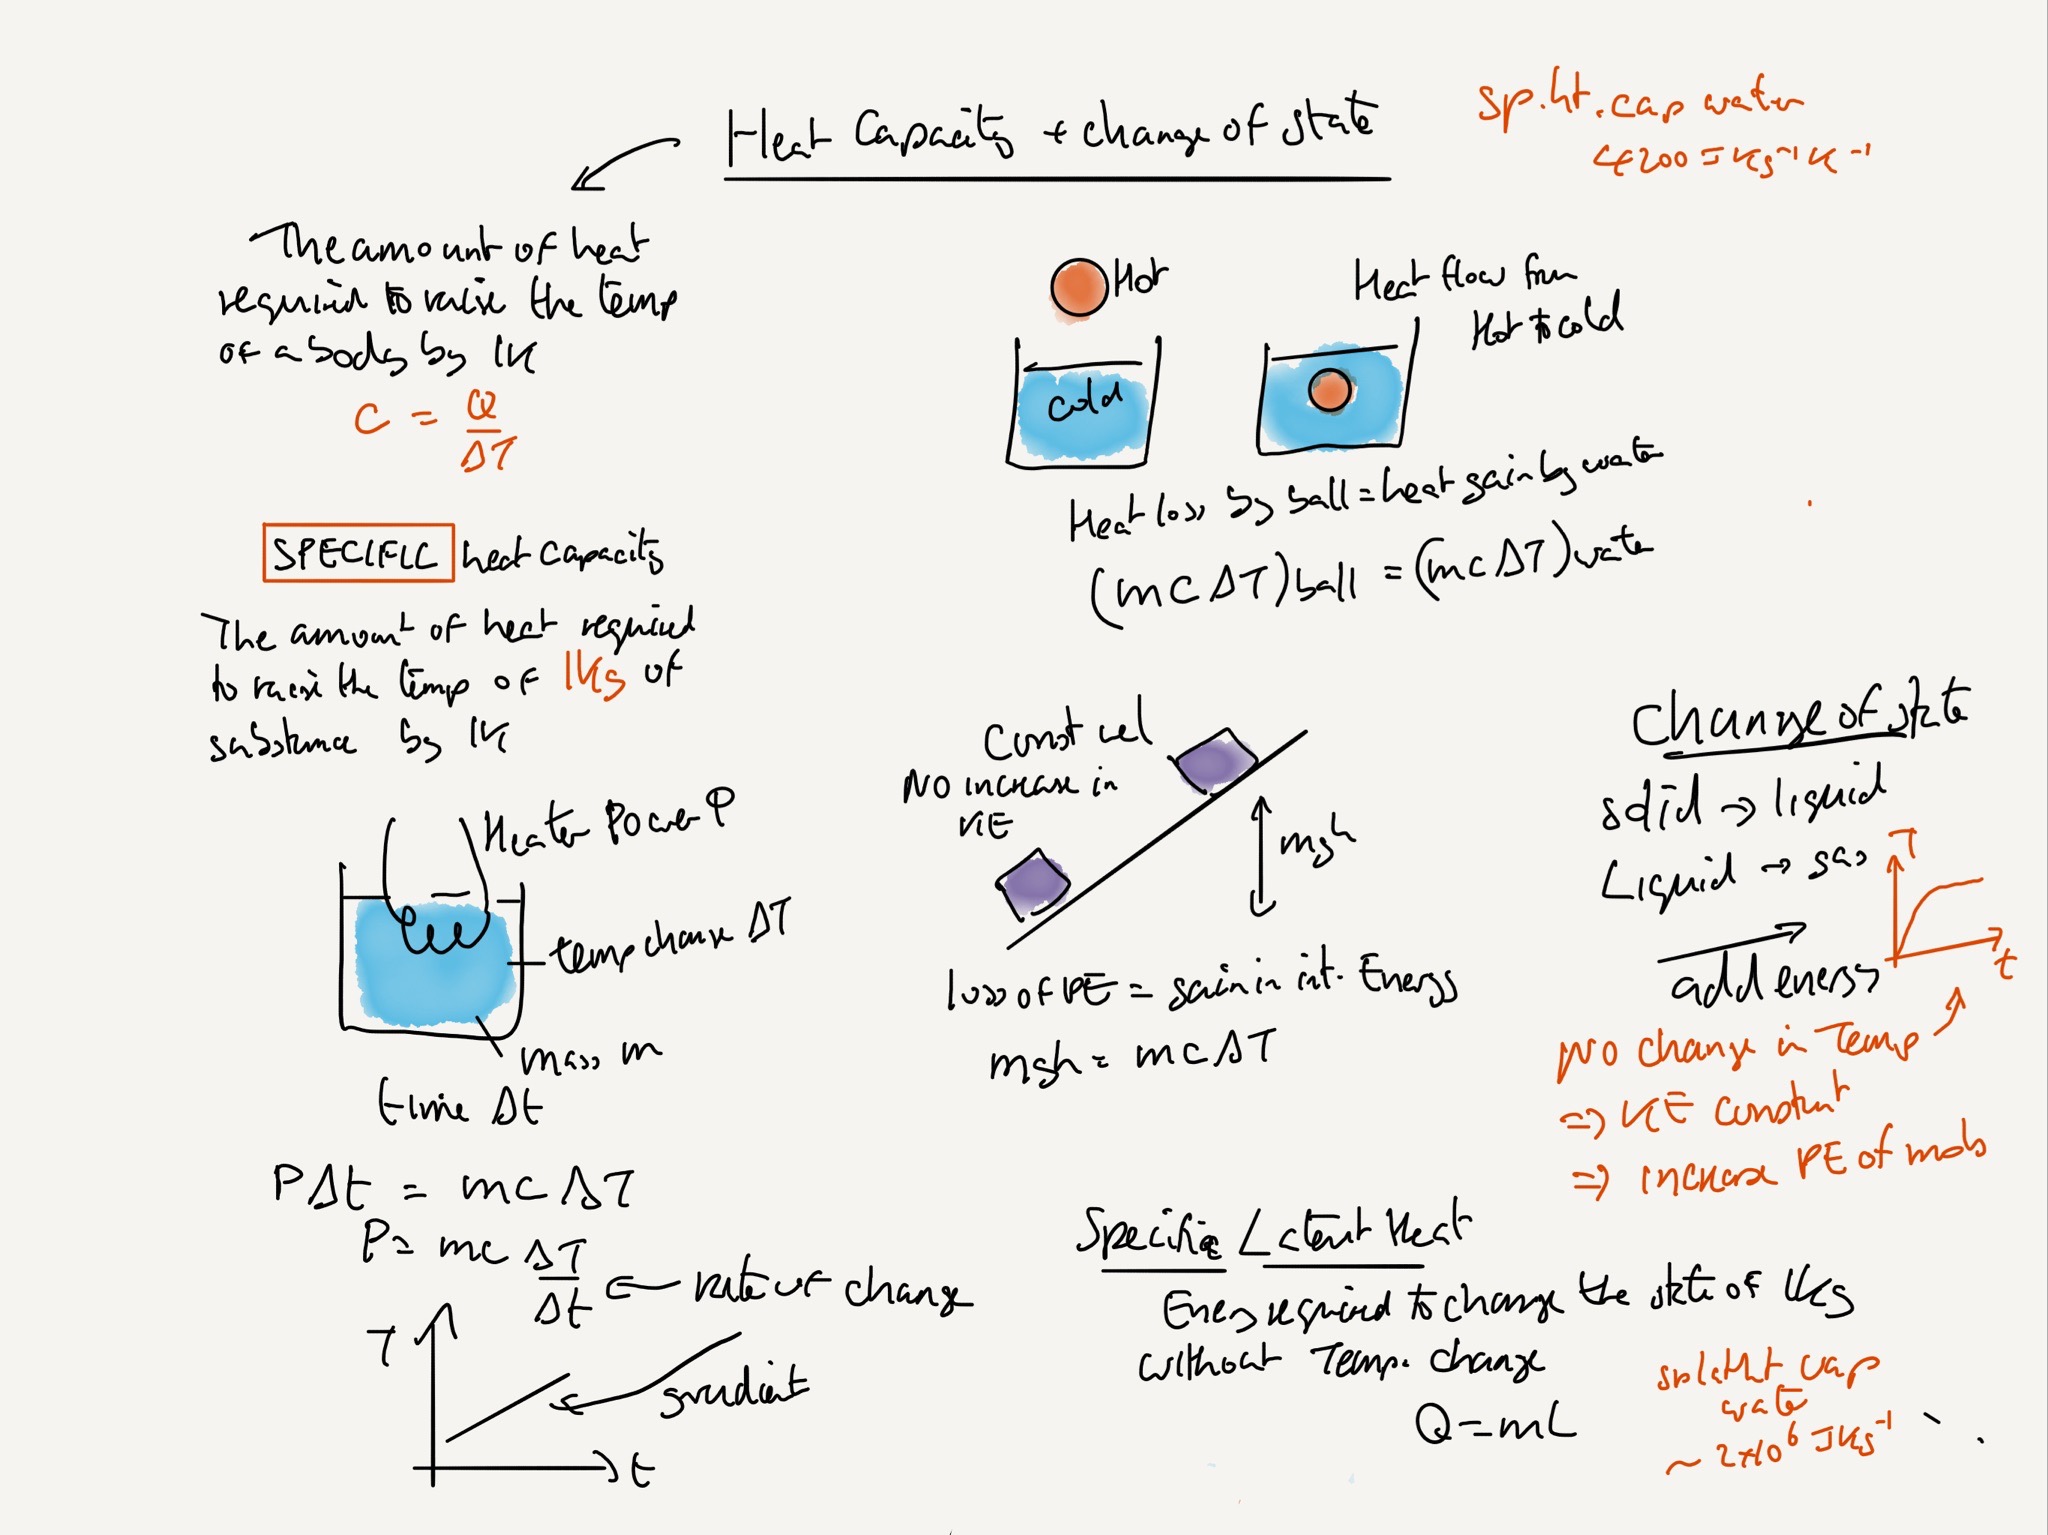 Heat Capacity + change of state
sp.ht.cap water
4200 J Kg⁻¹ K⁻¹
The amount of heat
required to raise the temp
of a body by 1K
C = Q/ΔT
SPECIFIC heat capacity
The amount of heat required
to raise the temp of 1Kg of
substance by 1K
Heater Power P
temp change ΔT
mass m
time Δt
PΔt = mcΔT
P = mc ΔT/Δt ← rate of change
T
gradient
t
Hot
Cold
Heat flow from
Hot to cold
Heat loss by ball = heat gain by water
(mcΔT)ball = (mcΔT)water
Const vel
NO increase in
KE
mgh
loss of PE = gain in int. Energy
mgh = mcΔT
Change of state
solid → liquid
Liquid → gas
add energy
T
t
No change in Temp
⇒ KE constant
⇒ increase PE of mols
Specific Latent Heat
Energy required to change the state of 1Kg
without Temp. change
Q = mL
sp lat ht vap
water
~ 2×10⁶ JKg⁻¹